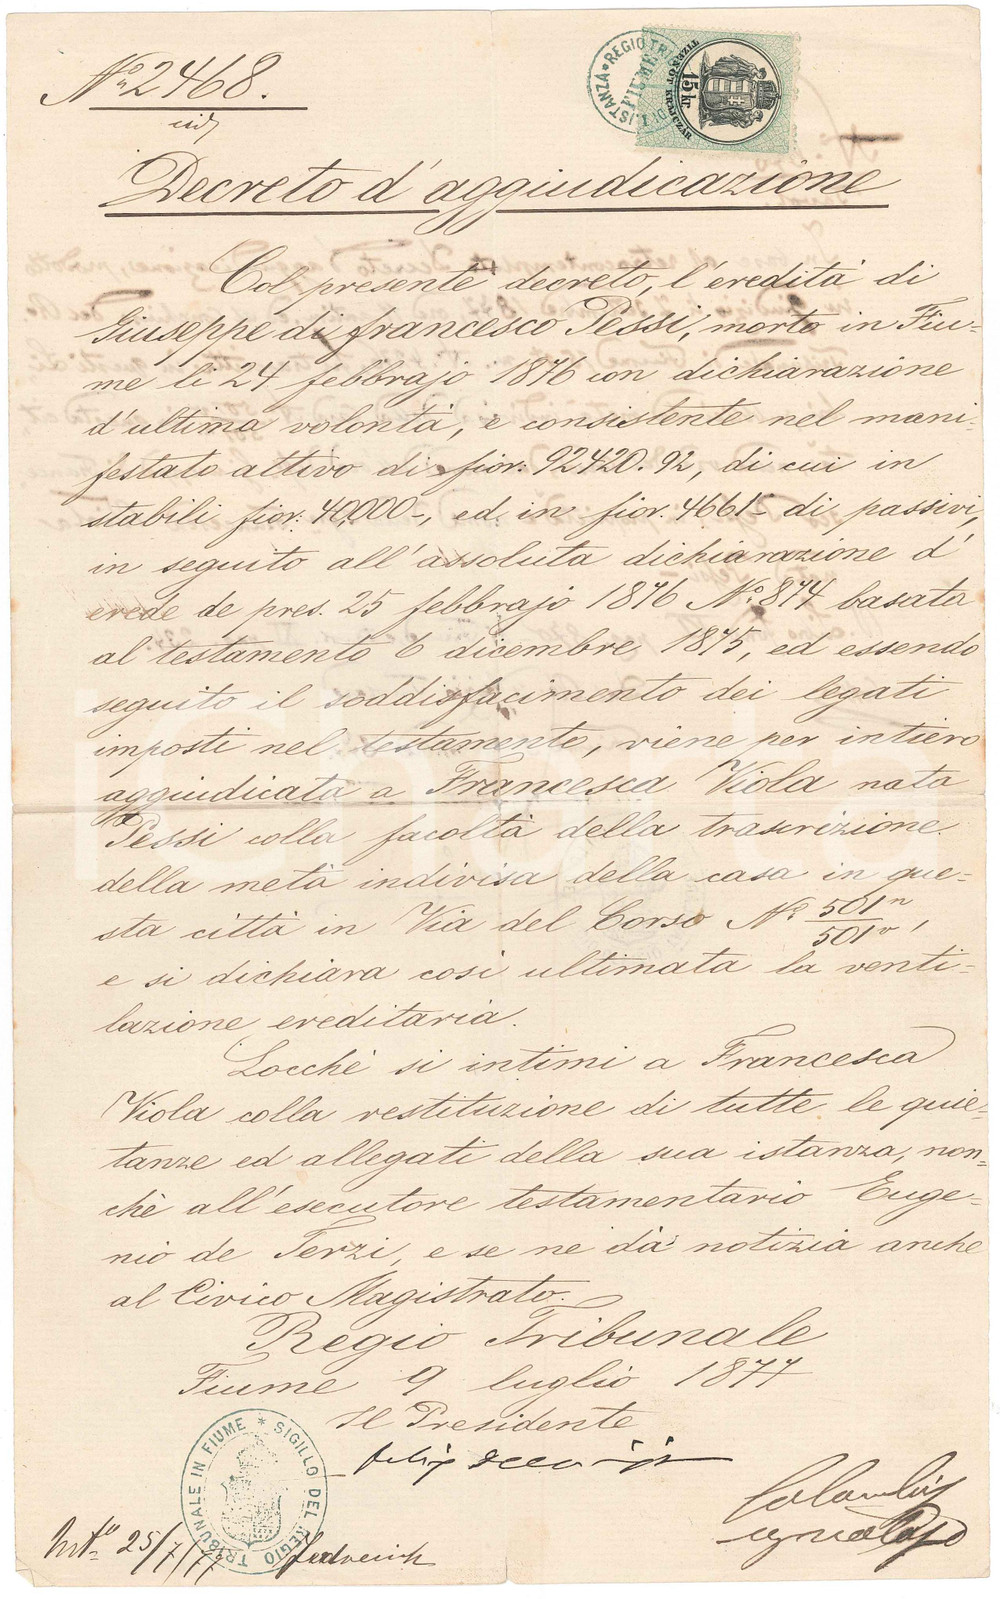 No 2468.
civ
REGIO TRIB. DI I. ISTANZA
FIUME
15 kr
TIZENÖT KRAJCZÁR
Decreto d'aggiudicazione
Col presente decreto, l'eredità di
Giuseppe di Francesco Pessi, morto in Fiu-
me li 24 febbrajo 1876 con dichiarazione
d'ultima volontà, e consistente nel mani-
festato attivo di fior: 92420.92, di cui in
stabili fior: 40,000-, ed in fior. 4661- di passivi,
in seguito all'assoluta dichiarazione d'
erede de pres. 25 febbrajo 1876 No 874 basata
al testamento 6 dicembre 1875, ed essendo
seguito il soddisfacimento dei legati
imposti nel testamento, viene per intiero
aggiudicata a Francesca Viola nata
Pessi colla facoltà della trascrizione
della metà indivisa della casa in que-
sta città in Via del Corso No 501n/501v,
e si dichiara così ultimata la venti-
lazione ereditaria.
Locchè si intimi a Francesca
Viola colla restituzione di tutte le quie-
tanze ed allegati della sua istanza, non-
chè all'esecutore testamentario Euge-
nio de Terzi, e se ne dà notizia anche
al Civico Magistrato.
Regio Tribunale
Fiume 9 luglio 1877
Il Presidente
SIGILLO DEL REGIO TRIBUNALE IN FIUME
25/7/77